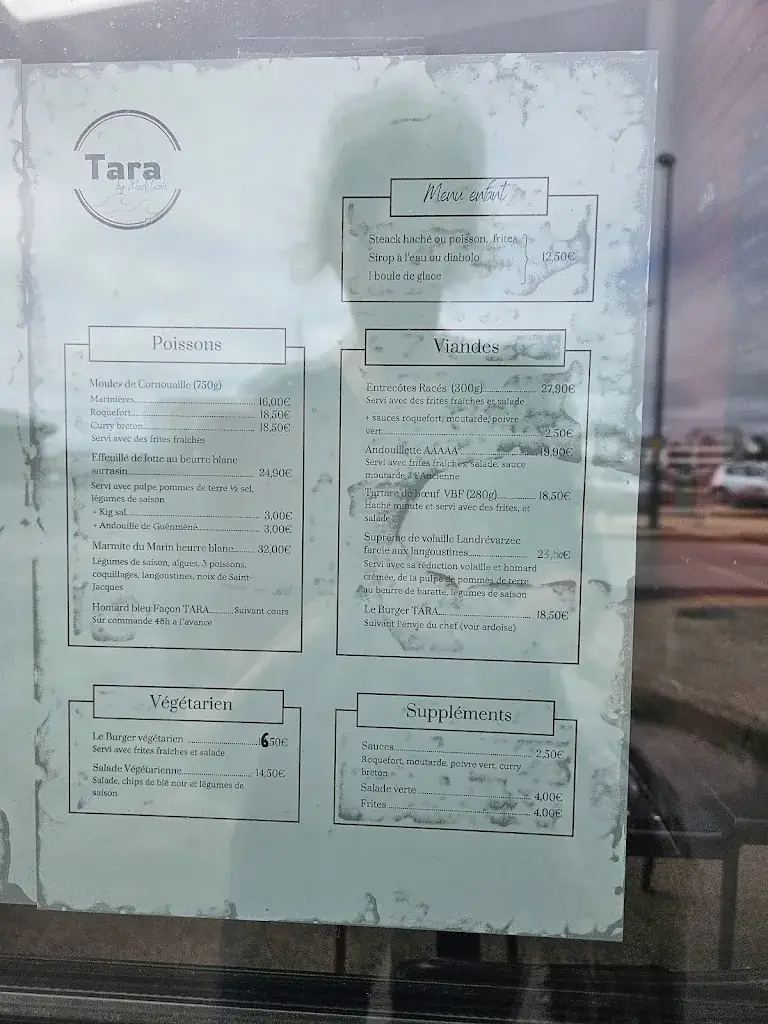 Tara
Menu enfant
Steack haché ou poisson, frites
Sirop à l'eau ou diabolo
12,50€
1 boule de glace
Poissons
Moules de Cornouaille (750g)
Marinières 16,00€
Roquefort 18,50€
Curry breton 18,50€
Servi avec des frites fraîches
Effeuillé de lotte au beurre blanc
sarrasin 24,90€
Servi avec pulpe pommes de terre ½ sel,
légumes de saison
+ Kig sal 3,00€
+ Andouille de Guémené 3,00€
Marmite du Marin beurre blanc 32,00€
Légumes de saison, algues, 3 poissons,
coquillages, langoustines, noix de Saint-
Jacques
Homard bleu Façon TARA Suivant cours
Sur commande 48h a l'avance
Viandes
Entrecôtes Racés (300g) 27,90€
Servi avec des frites fraîches et salade
+ sauces roquefort, moutarde, poivre
vert 2,50€
Andouillette AAAAA 19,90€
Servi avec frites fraîches, salade, sauce
moutarde à l'Ancienne
Tartare de bœuf VBF (280g) 18,50€
Haché minute et servi avec des frites, et
salade
Suprême de volaille Landrévarzec
farcie aux langoustines
Servi avec sa réduction volaille et homard
crémée, de la pulpe de pommes de terre
au beurre de baratte, légumes de saison
Le Burger TARA 18,50€
Suivant l'envie du chef (voir ardoise)
Végétarien
Le Burger végétarien 16,50€
Servi avec frites fraîches et salade
Salade Végétarienne 14,50€
Salade, chips de blé noir et légumes de
saison
Suppléments
Sauces 2,50€
Roquefort, moutarde, poivre vert, curry
breton
Salade verte 4,00€
Frites 4,00€